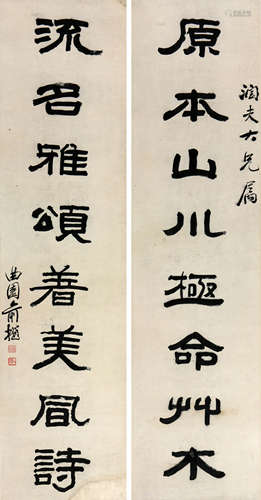 润夫大兄属
原本山川極命艸木
流名雅頌著美風詩
曲園俞樾